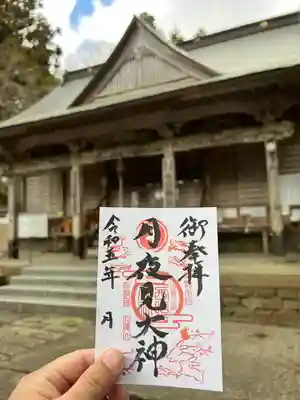 御奉拝
月夜見大神
令和五年 月